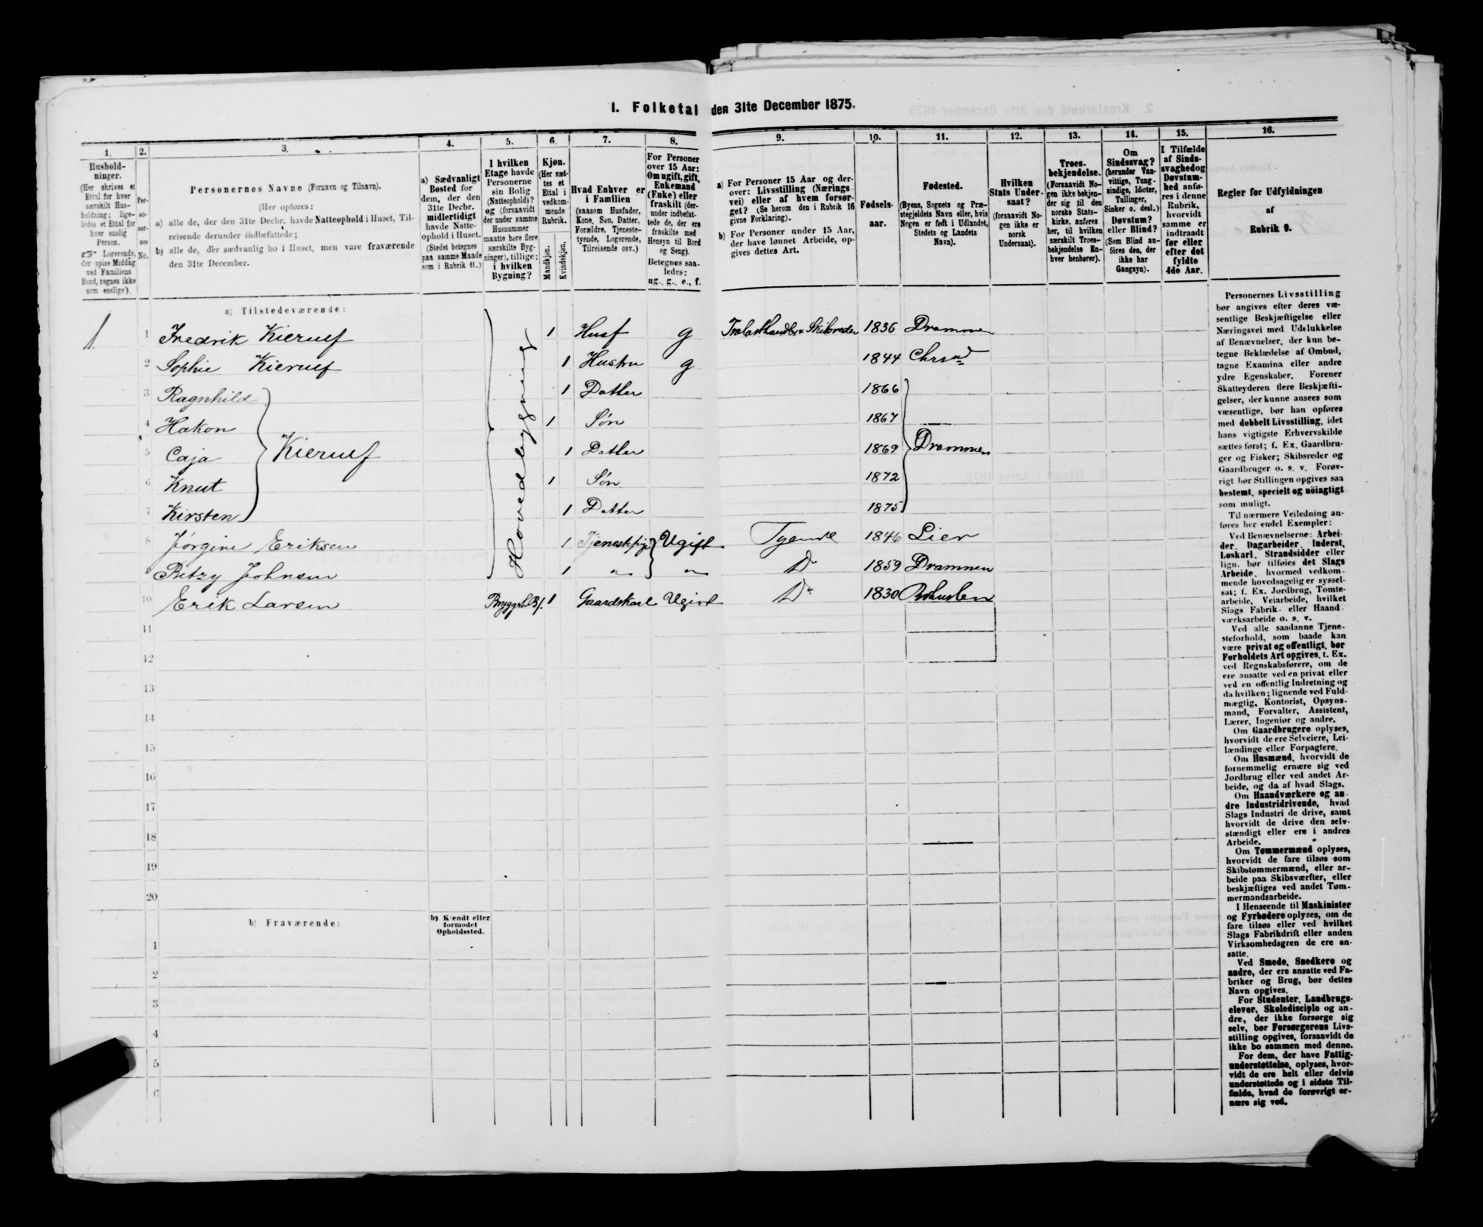 1. Folketal den 31te December 1875.
1.
Hushold-
ninger.
(Her skrives et
Ettal for hver
særskilt Hus-
holdning; lige-
ledes et Ettal for
hver enslig
Person.
Logerende,
der spise Middag
ved Familiens
Bord, regnes ikke
som enslige).
2.
Per-
so-
ner-
nes
No.
3.
Personernes Navne (Fornavn og Tilnavn).
(Her opføres:
a) alle de, der den 31te Decbr. havde Natteophold i Huset, Til-
reisende derunder indbefattede;
b) alle de, der sædvanlig bo i Huset, men vare fraværende
den 31te December.
4.
a) Sædvanligt
Bosted for
dem, der den
31te Decbr.
midlertidigt
havde Natte-
ophold i Huset.
(Stedet betegnes
paa samme Maade
som i Rubrik 11.)
5.
I hvilken
Etage havde
Personerne
sin Bolig
(Natteophold)?
og (forsaavidt
der under samme
Husnummer
maatte høre flere
særskilte Byg-
ninger), tillige:
i hvilken
Bygning?
6.
Kjøn.
(Her sæt-
tes et
Ettal i
vedkom-
mende
Rubrik.
Mandkjøn.
Kvindekjøn.
7.
Hvad Enhver er
i Familien
(saasom Husfader,
Kone, Søn, Datter,
Forældre, Tjeneste-
tyende, Logerende,
Tilreisende osv.)
8.
For Personer
over 15 Aar:
Om ugift, gift,
Enkemand
(Enke) eller
fraskilt (der-
under indbefat-
tede de, der ere
fraskilte med
Hensyn til Bord
og Seng).
Betegnes saa-
ledes:
ug., g., e., f.
9.
a) For Personer 15 Aar og der-
over: Livsstilling (Nærings-
vei) eller af hvem forsør-
get? (Se herom den i Rubrik 16
givne Forklaring).
b) For Personer under 15 Aar,
der have lønnet Arbeide, op-
gives dettes Art.
10.
Fødsels-
aar.
11.
Fødested.
(Byens, Sognets og Præ-
stegjeldets Navn eller, hvis
Nogen er født i Udlandet,
Stedets og Landets
Navn).
12.
Hvilken
Stats Under-
saat?
(forsaavidt No-
gen ikke er
norsk
Undersaat).
13.
Troes-
bekjendelse.
(Forsaavidt No-
gen ikke bekjen-
der sig til den
norske Stats-
kirke, anføres
her, til hvilken
særskilt Troes-
bekjendelse En-
hver henhører).
14.
Om
Sindssvag?
(herunder Van-
vittige, Tung-
sindige, Idioter,
Tullinger,
Sinker o. desl.)
Døvstum?
eller Blind?
(Som Blind an-
føres den, der
ikke har
Gangsyn).
15.
I Tilfælde
af Sinds-
svaghed og
Døvstum-
hed anfø-
res i denne
Rubrik,
hvorvidt
samme er
indtraadt
før eller
efter det
fyldte
4de Aar.
16.
Regler for Udfyldningen
af
Rubrik 9.
a) Tilstedeværende:
1 1 Fredrik Kierulf Hovedbygning 1 Husf g Trælasthandler Skibsreder 1836 Drammen
2 Sophie Kierulf 1 Hustru g 1844 Chrsand
3 Ragnhild 1 Datter 1866
4 Hakon 1 Søn 1867
5 Caja Kierulf 1 Datter 1869 Drammen
6 Knut 1 Søn 1872
7 Kirsten 1 Datter 1875
8 Jørgine Eriksen 1 Tjenestpige Ugift Tyende 1846 Lier
9 Betzy Johnsen 1 " " Do 1859 Drammen
10 Erik Larsen 1 Gaardskarl Ugivt Do 1830
11
12
13
14
15
16
17
18
19
20
b) Fraværende:
b) Kjendt eller
formodet
Opholdssted.
1
2
3
4
5
6
Personernes Livsstilling
bør angives efter deres væ-
sentlige Beskjæftigelse eller
Næringsvei med Udelukkelse
af Benævnelser, der kun be-
tegne Beklædelse af Ombud,
tagne Examina eller andre
ydre Egenskaber. Forener
Skatteyderen flere Beskjæfti-
gelser, der kunne ansees som
væsentlige, bør han opføres
med dobbelt Livsstilling, idet
hans vigtigste Erhvervskilde
sættes først; f. Ex. Gaardbru-
ger og Fisker; Skibsreder og
Gaardbruger o. s. v. Forøv-
rigt bør Stillingen opgives saa
bestemt, specielt og nøiagtigt
som muligt.
Til nærmere Veiledning an-
føres her endel Exempler:
Ved Benævnelserne: Arbei-
der, Dagarbeider, Inderst,
Løskarl, Strandsidder eller
lign. bør tilføies det Slags
Arbeide, hvormed vedkom-
mende hovedsagelig er syssel-
sat; f. Ex. Jordbrug, Tomte-
arbeide, Veiarbeide, hvilket
Slags Fabrik- eller Haand-
værksarbeide o. s. v.
Ved alle saadanne Tjene-
steforhold, som baade kan
være privat og offentligt, bør
Forholdets Art opgives, t. Ex.
ved Regnskabsførere, om de
ere ansatte ved en privat eller
ved en offentlig Indretning og
da hvilken; lignende ved Fuld-
mægtig, Kontorist, Opsyns-
mand, Forvalter, Assistent,
Lærer, Ingeniør og andre.
Om Gaardbrugere oplyses,
hvorvidt de ere Selveiere, Lei-
lændinge eller Forpagtere.
Om Husmænd, hvorvidt de
fornemmelig ernære sig ved
Jordbrug eller ved andet Ar-
beide, og da af hvad Slags.
Om Haandværkere og an-
dre Industridrivende, hvad
Slags Industri de drive, samt
hvorvidt de drive den selv-
stændigt eller ere i andres
Arbeide.
Om Tømmermænd oplyses,
hvorvidt de fare tilsøs som
Skibstømmermænd, eller ar-
beide paa Skibsværfter, eller
beskjæftiges ved andet Tøm-
mermandsarbeide.
I Henseende til Maskinister
og Fyrbødere oplyses, om de
fare tilsøs eller ved hvilket
Slags Fabrikdrift eller anden
Virksomhedsgren de ere an-
satte.
Ved Smede, Snedkere og
andre, der ere ansatte ved Fa-
briker og Brug, bør dettes
Navn opgives.
For Studenter, Landbrugs-
elever, Skoledisciple og an-
dre, der ikke forsørge sig
selv, bør Forsørgerens Livs-
stilling opgives, forsaavidt de
ikke bo sammen med denne.
For dem, der have Fattig-
understøttelse, oplyses, hvor-
vidt de ere helt eller delvis
understøttede og i sidste Til-
fælde, hvad de forøvrigt er-
nære sig ved.